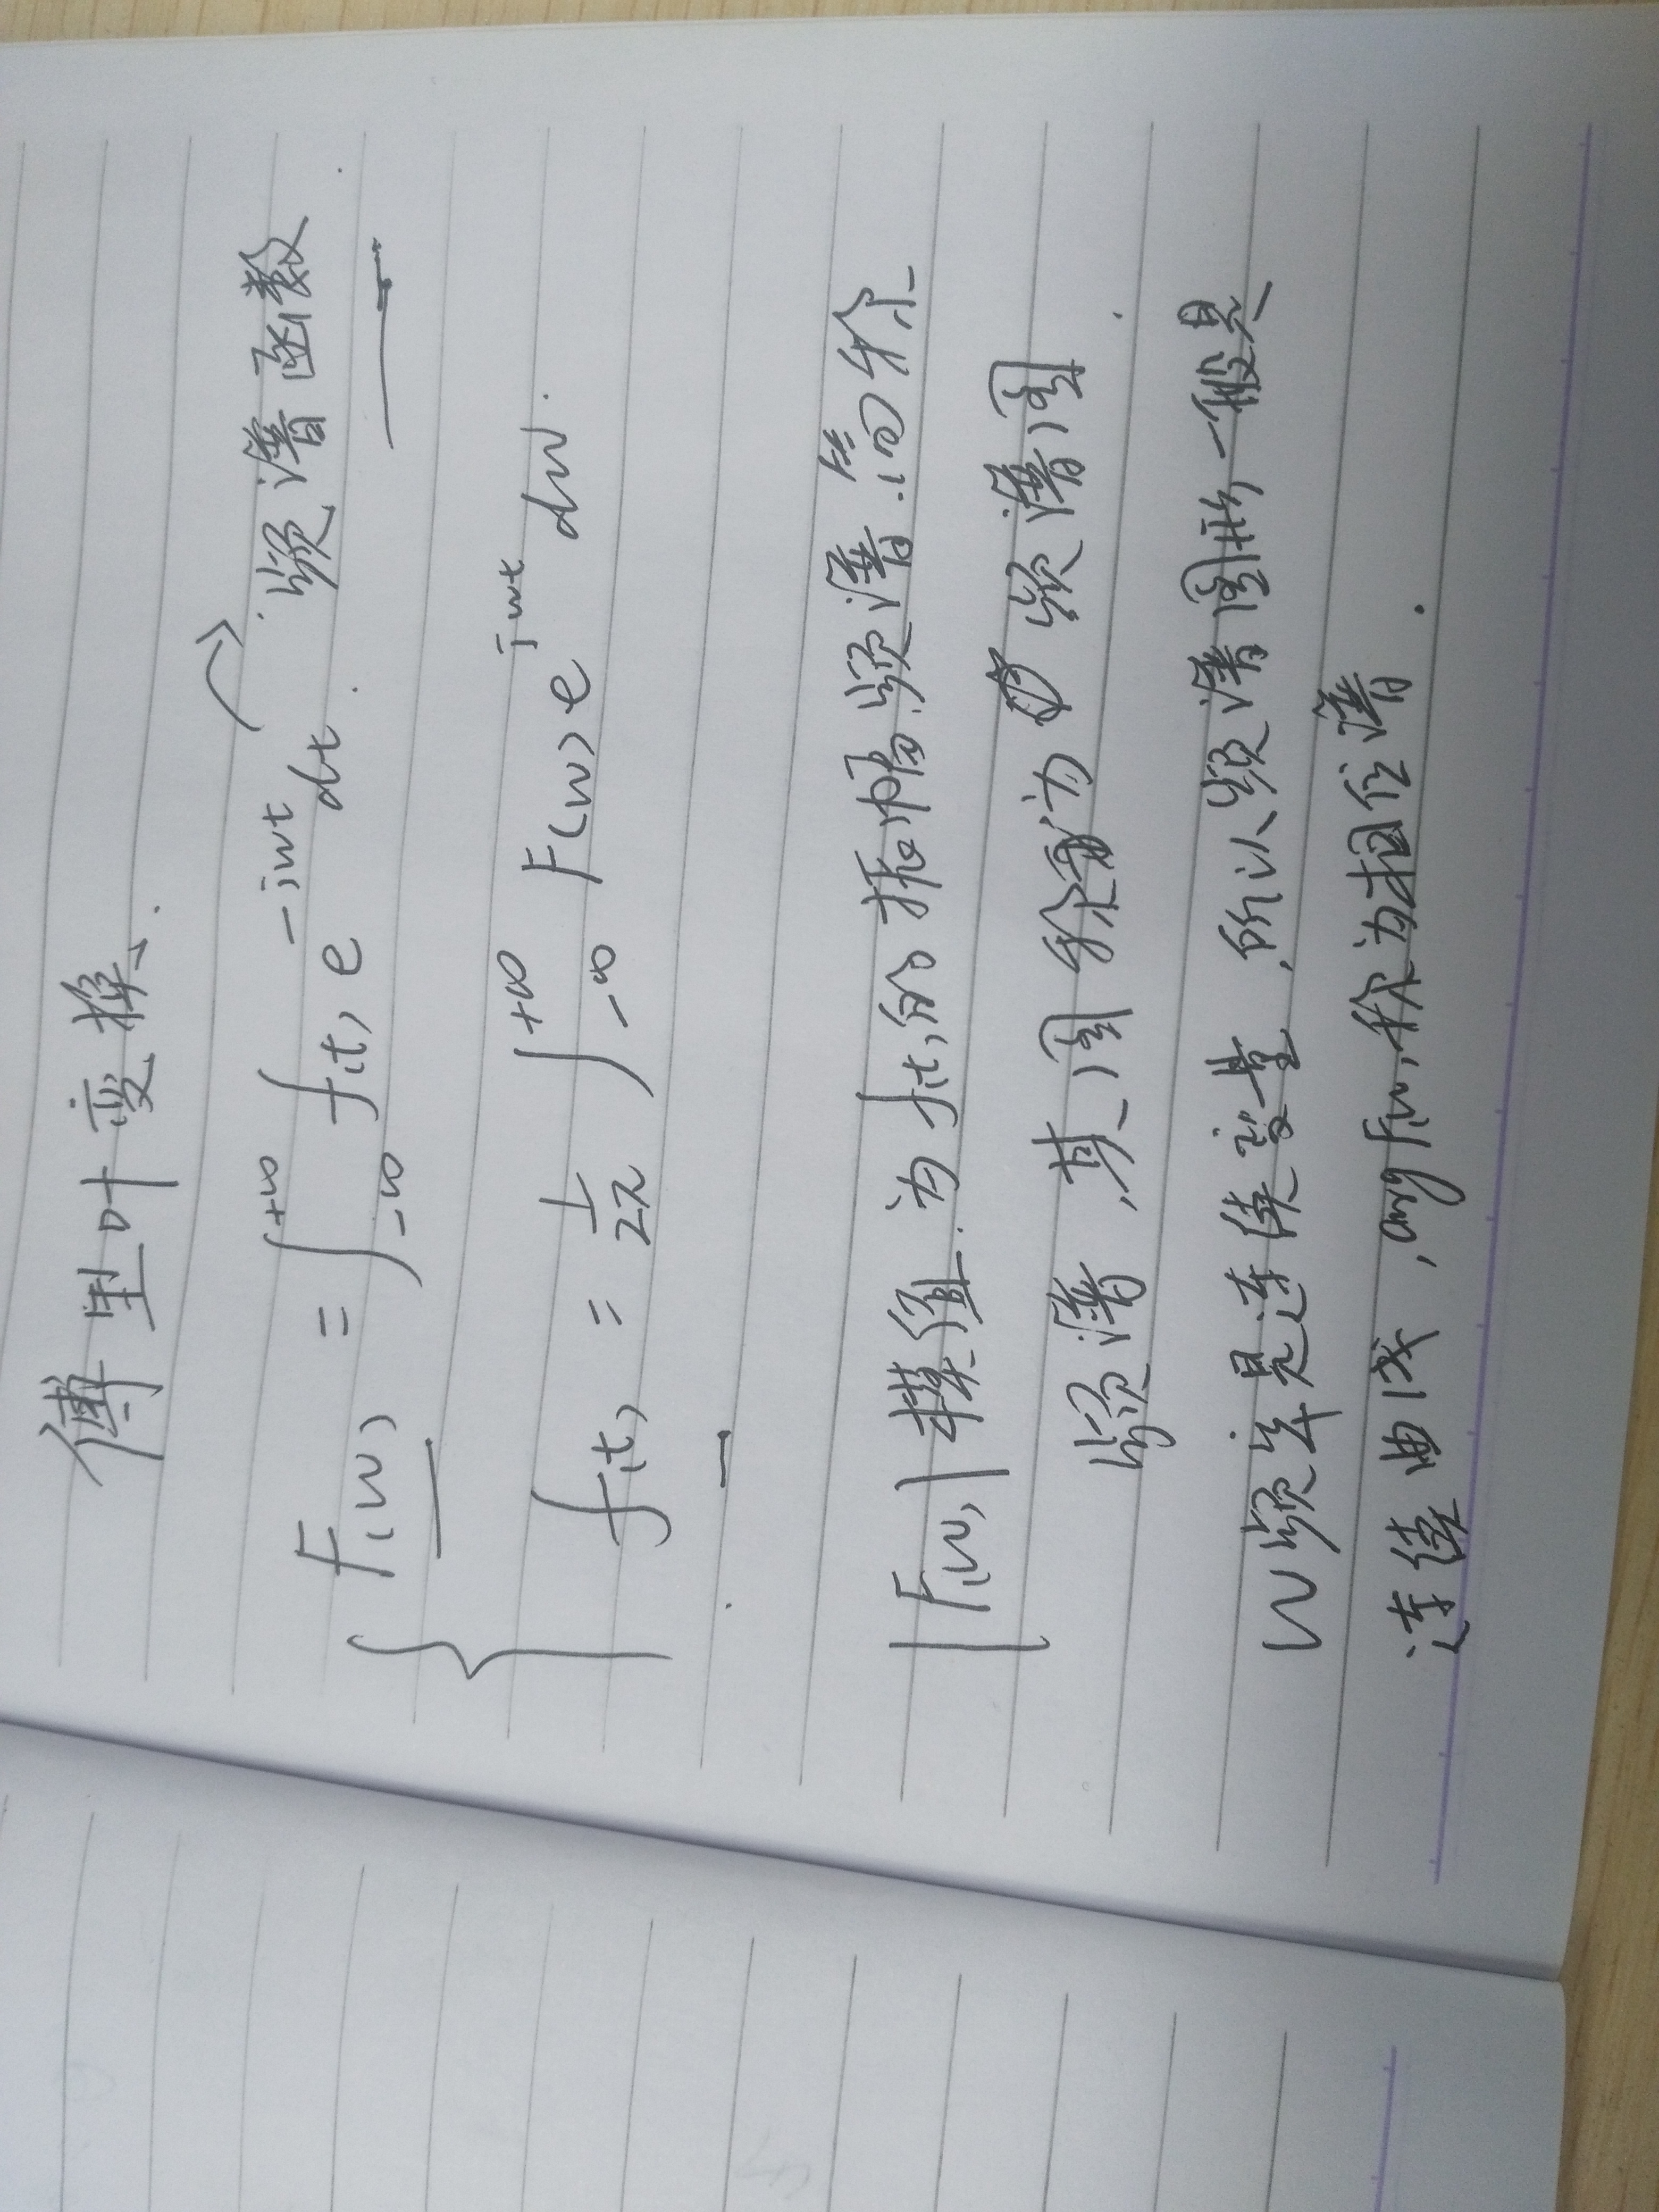 傅里叶变换.
F(w) = ∫_{-∞}^{+∞} f(t) e^{-iwt} dt. → 频谱函数
f(t) = 1/2π ∫_{-∞}^{+∞} F(w) e^{iwt} dw.
|F(w)| 模值. 为f(t)的振幅频谱.简称
频谱,其图称为频谱图.
w频率是连续变量.所以频谱图形一般是
连续曲线,arg F(w)称为相位谱.